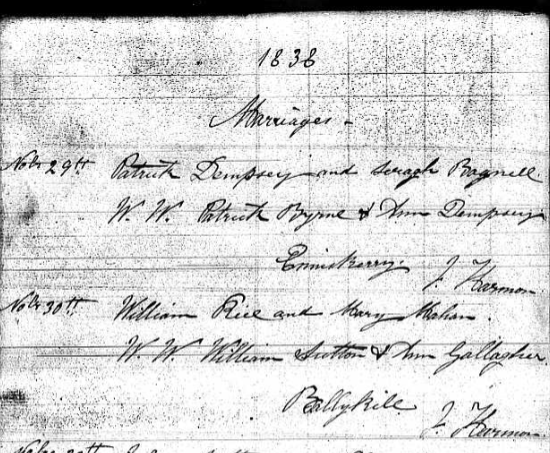 1838
Marriages -
Nobr 29th Patrick Dempsey and Seragh Bagnell.
W. W. Patrick Byrne & Ann Dempsey
Enniskerry. J. Harmon
Nobr 30th William Rice and Mary Mahan.
W. W. William Sutton & Ann Gallagher.
Ballykill J. Harmon